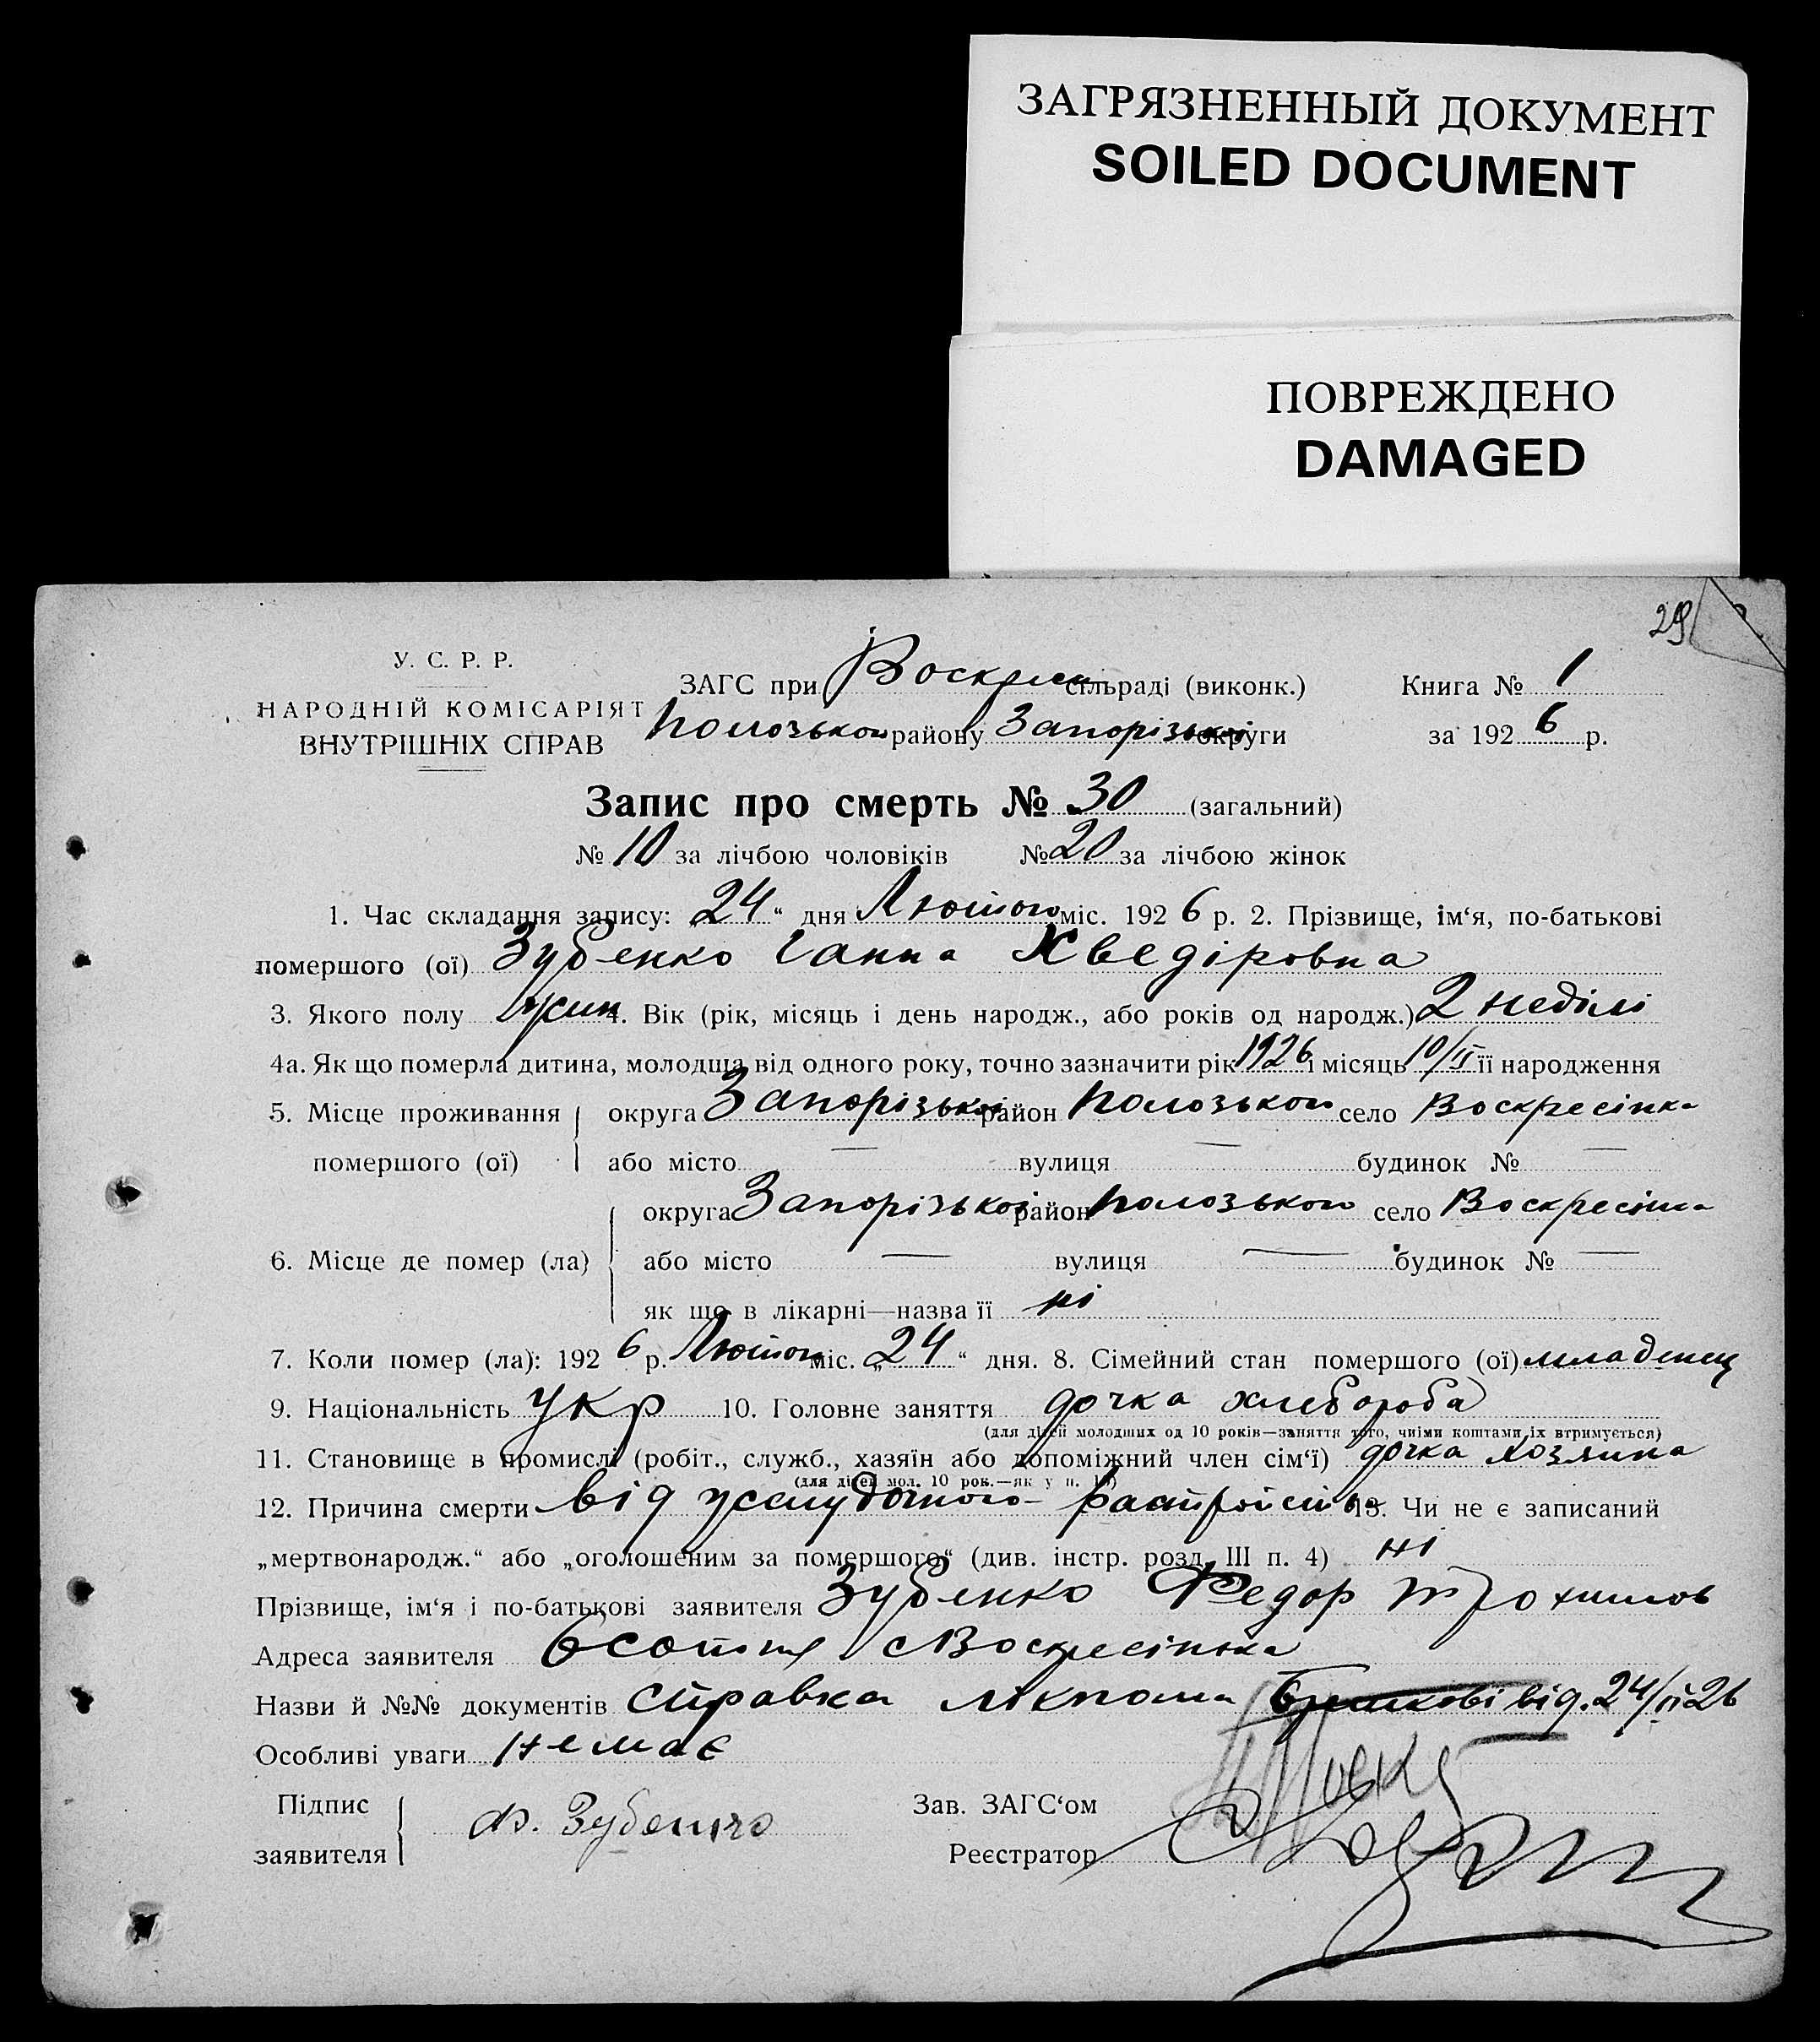 ЗАГРЯЗНЕННЫЙ ДОКУМЕНТ
SOILED DOCUMENT
ПОВРЕЖДЕНО
DAMAGED
29
У. С. Р. Р.
НАРОДНІЙ КОМІСАРІЯТ
ВНУТРІШНІХ СПРАВ
ЗАГС при Воскресен сільраді (виконк.) Книга № 1
Полозького району Запорізької округи за 1926 р.
Запис про смерть № 30 (загальний)
№ 10 за лічбою чоловіків № 20 за лічбою жінок
1. Час складання запису: „24“ дня Лютого міс. 1926 р. 2. Прізвище, ім‘я, по-батькові
помершого (ої) Зубенко Ганна Хведіровна
3. Якого полу жин 4. Вік (рік, місяць і день народж., або років од народж.) 2 неділі
4а. Як що померла дитина, молодша від одного року, точно зазначити рік 1926 і місяць 10/II її народження
5. Місце проживання помершого (ої) округа Запорізької район Полозького село Воскресінка
або місто — вулиця — будинок № —
6. Місце де помер (ла) округа Запорізької район Полозького село Воскресінка
або місто — вулиця — будинок № —
як що в лікарні—назва її ні
7. Коли помер (ла): 1926 р. Лютого міс. „24“ дня. 8. Сімейний стан помершого (ої) младенец
9. Національність укр 10. Головне заняття дочка хлебороба
(для дітей молодших од 10 років—заняття того, чиїми коштами їх втримується)
11. Становище в промислі (робіт., служб., хазяїн або допоміжний член сім‘ї) дочка хозяина
(для дітей мол. 10 рок.—як у п. 10)
12. Причина смерти від желудочного растройства 13. Чи не є записаний
„мертвонародж.“ або „оголошеним за помершого“ (див. інстр. розд. III п. 4) ні
Прізвище, ім‘я і по-батькові заявителя Зубенко Федор Трохимов
Адреса заявителя 6 сотня с Воскресінка
Назви й №№ документів Справка лікпома від. 24/II 26
Особливі уваги немає
Підпис заявителя Ф. Зубенко
Зав. ЗАГС‘ом
Реєстратор